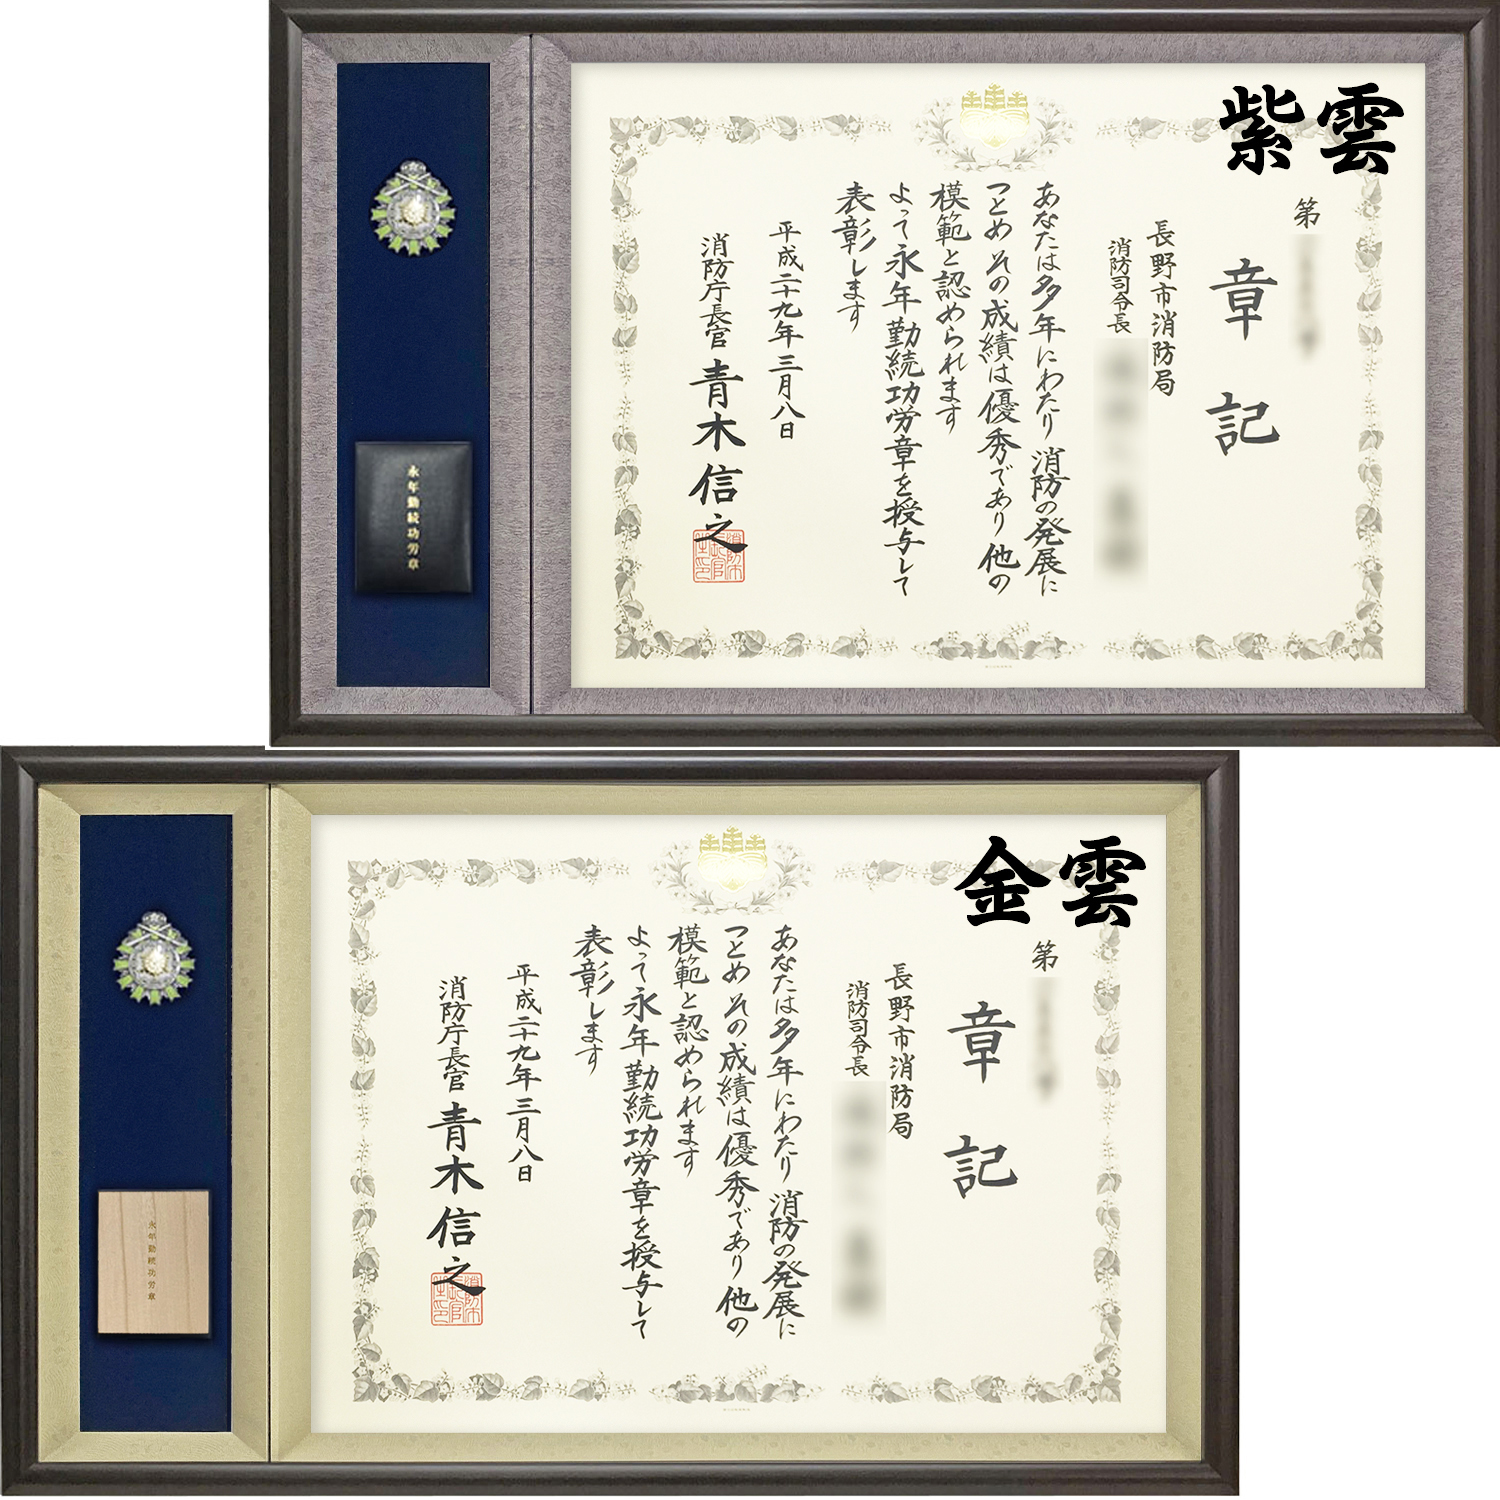 紫雲
第
章記
長野市消防局
消防司令長
あなたは多年にわたり消防の発展に
つとめその成績は優秀であり他の
模範と認められます
よって永年勤続功労章を授与して
表彰します
平成二十九年三月八日
消防庁長官 青木信之
永年勤続功労章
金雲
第
章記
長野市消防局
消防司令長
あなたは多年にわたり消防の発展に
つとめその成績は優秀であり他の
模範と認められます
よって永年勤続功労章を授与して
表彰します
平成二十九年三月八日
消防庁長官 青木信之
永年勤続功労章